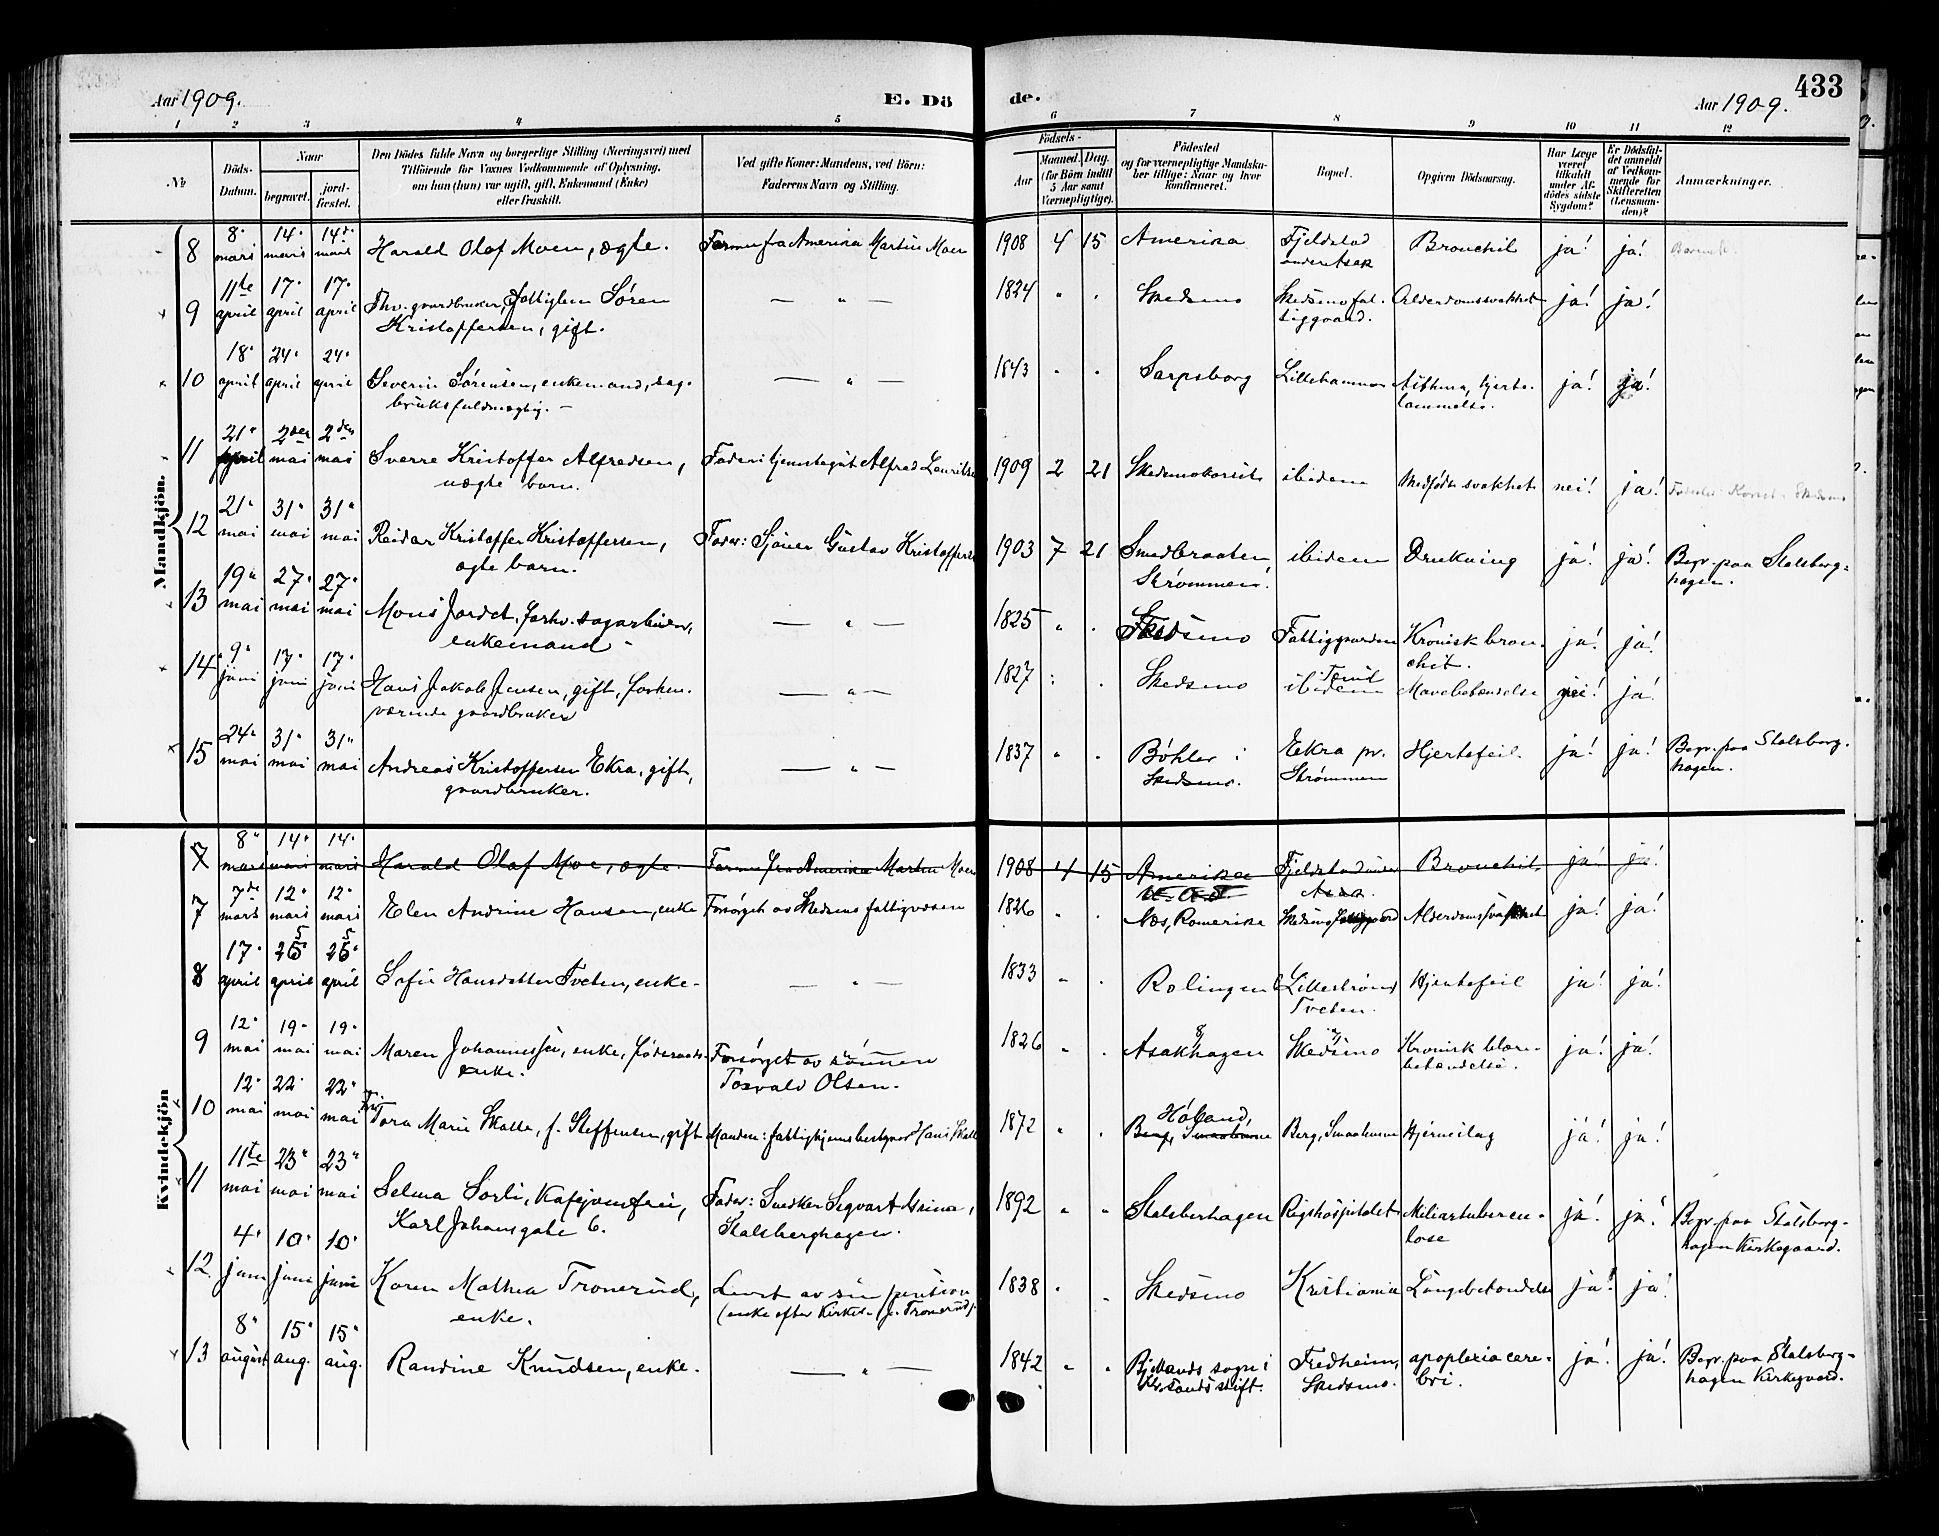 433
Aar 1909.
E. Dö
de.
Aar 1909.
1 2 3 4 5 6 7 8 9 10 11 12
No
Döds-
Datum.
Naar
begravet.
jord-
fæstet.
Den Dödes fulde Navn og borgerlige Stilling (Næringsvei) med
Tilföiende for Voxnes Vedkommende af Oplysning,
om hun (hun) var ugift, gift, Enkemand (Enke)
eller fraskilt.
Ved gifte Koner: Mandens, ved Börn:
Faderens Navn og Stilling.
Födsels-
Aar
Maaned. Dag.
(for Börn indtil
5 Aar samt
Værnepligtige).
Födested
og for værnepligtige Mandska-
ber tillige: Naar og hvor
konfirmeret.
Bopæl.
Opgiven Dödsaarsag.
Har Læge
været
tilkaldt
under Af-
dödes sidste
Sygdom?
Er Dödsfal-
det anmeldt
af Vedkom-
mende for
Skifteretten
(Lensman-
den)?
Anmærkninger.
Mandkjön.
8 8 mars 14 mars 14d mars Harald Olaf Moen, ægte. fra Amerika Martin Moen 1908 4 15 Amerika Fjeldstad
under Asak Bronchit ja! ja!
9 11te april 17 april 17 april Fhv. gaardbruker, fattiglem Sören
Kristoffersen, gift. — " — 1824 " . Skedsmo Skedsmo fat-
tiggaard. Alderdomssvakhet ja! ja!
10 18 april 24 april 24 april Severin Sörensen, enkemand, sag-
bruksfuldmægtig. — — " — 1843 " . Sarpsborg Lillehammer Asthma, hjerte-
lammelse. ja! ja!
11 21 april 2den mai 2den mai Sverre Kristoffer Alfredsen,
uægte barn. Fader: tjenestegut Alfred Lauritsen 1909 2 21 Skedsmokorset ibidem Medfödt svakhet nei! ja!
12 21 mai 31 mai 31 mai Reidar Kristoffer Kristoffersen,
ægte barn. Fader: Sjauer Gustav Kristoffersen 1903 7 21 Smedbraaten,
Strømmen. ibidem Drukning ja! ja! Begr. paa Stalsberg-
hagen.
13 19 mai 27 mai 27 mai Mons Jordet, forhv. sagarbeider,
enkemand — — " — 1825 " . Skedsmo Fattiggaarden Kronisk bron-
chit. ja! ja!
14 9 juni 17 juni 17 juni Hans Jakob Jensen, gift, forhen-
værende gaardbruker — " — 1827 : . Skedsmo ibidem Mavebetændelse nei! ja!
15 24 mai 31 mai 31 mai Andreas Kristoffersen Ekra, gift,
gaardbruker. — " — 1837 " . Böhler i
Skedsmo. Ekra pr.
Strømmen Hjertefeil ja! ja! Begr. paa Stalsberg-
hagen.
Kvindekjön
7 8 mars 14 mars 14 mars Harald Olaf Moe, ægte. fra Amerika Martin Moen 1908 4 15 Amerika Fjeldstad under
Asak Bronchit ja! ja!
7 7de mars 12 mars 12 mars Elen Andrine Hansen, enke Forsörget av Skedsmo fattigvæsen 1826 " . Næs, Romerike Skedsmo fattiggaard Alderdomssvakhet ja! ja!
8 17 april 25 april 25 april Sofie Hansdatter Tveten, enke- — " — 1833 " . Rælingen Lillestrøms
Tveten. Hjertefeil ja! ja!
9 12 mai 19 mai 19 mai Maren Johannessen, enke, föderaads-
enke. Forsörget av sönnen
Torvald Olsen. 1826 " . Asakhagen Skedsmo Kronisk blære-
betændelse. ja! ja!
10 12 mai 22 mai 22 mai Fru Tora Marie Skatte, f. Steffensen, gift Manden: fattighjemsbestyrer Hans Skatte 1872 " . Höland,
Berg, Smaahusene Berg, Smaahusene Hjerneslag ja! ja!
11 11te mai 23 mai 23 mai Selma Sorli, kafejomfru,
Karl Johansgate 6. Fader: Snedker Segvart
Stalsberghagen. 1892 " " Stalsberhagen Rigshospitalet Miliærtuberku-
lose ja! ja! Begr. paa Stalsberg-
hagen Kirkegaard.
12. 4 juni 10 juni 10 juni Karen Mathea Tronerud,
enke. Levet av sin pension
(enke efter Kirkes. J. Tronerud) 1838 " " Skedsmo Kristiania Lungebetændelse ja! ja!
13 8 august 15 aug. 15 aug. Randine Knudsen, enke. — " — 1842 " " Bjellands sogn i
Kr.sands stift. Fredheim,
Skedsmo. apoplexia cere-
bri. ja! ja! Begr. paa Stalsberg-
hagen Kirkegaard.